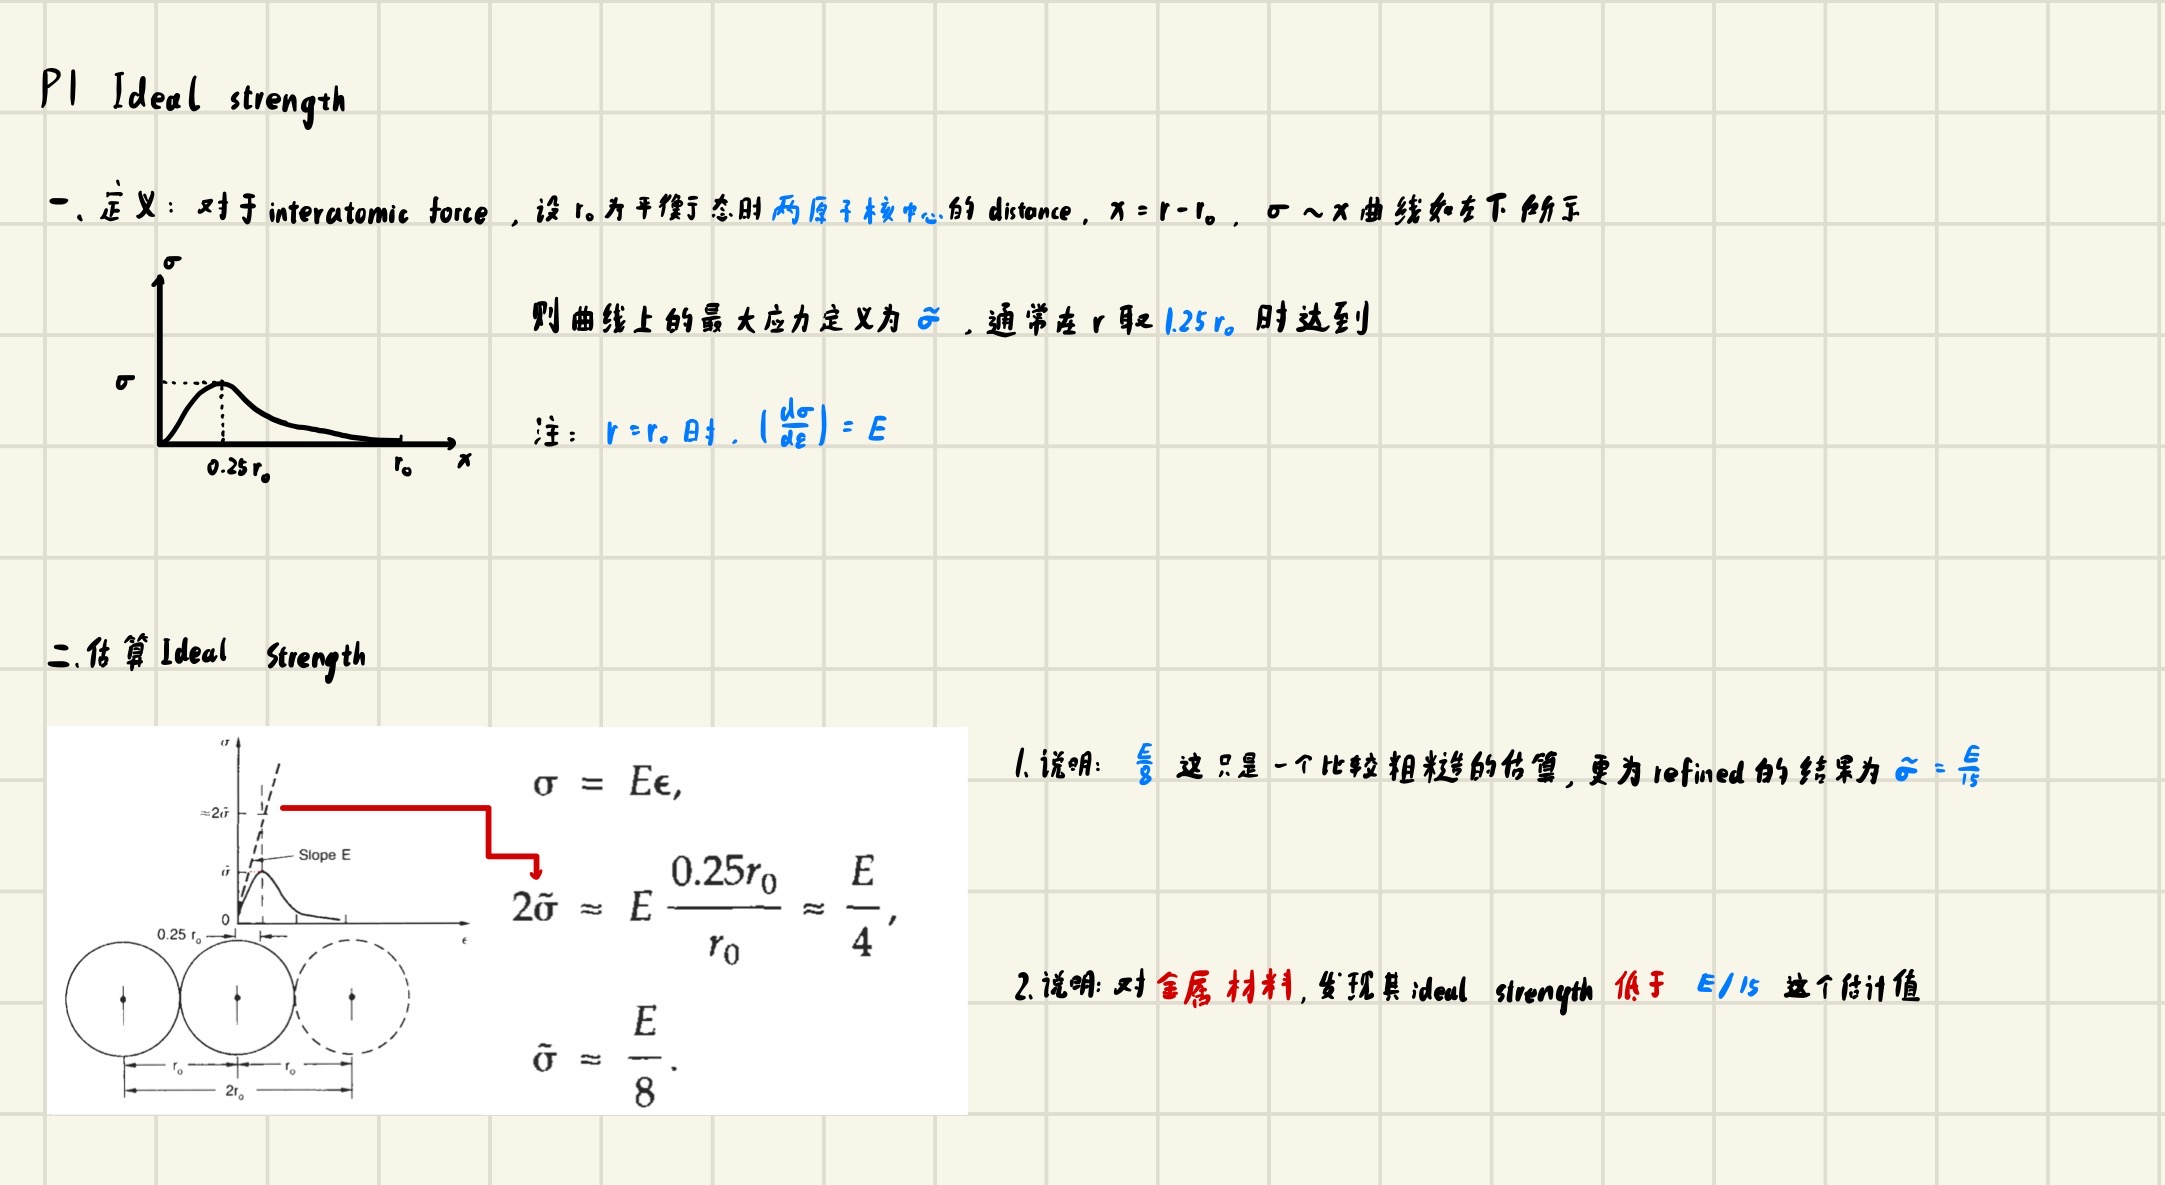 P1 Ideal strength
一、定义：对于interatomic force，设r₀为平衡态时两原子核中心的distance，x = r - r₀，σ ~ x曲线如左下所示
σ
σ
0.25r₀
r₀
x
则曲线上的最大应力定义为σ̃，通常在r取1.25r₀时达到
注：r = r₀时，(dσ/dε) = E
二、估算Ideal Strength
σ
≈2σ̃
Slope E
σ̃
0
0.25 r₀
ϵ
r₀
r₀
2r₀
σ = Eϵ,
2σ̃ ≈ E 0.25r₀/r₀ ≈ E/4,
σ̃ ≈ E/8.
1.说明：E/8 这只是一个比较粗糙的估算，更为refined的结果为σ̃ = E/15
2.说明：对金属材料，发现其ideal strength低于 E/15 这个估计值